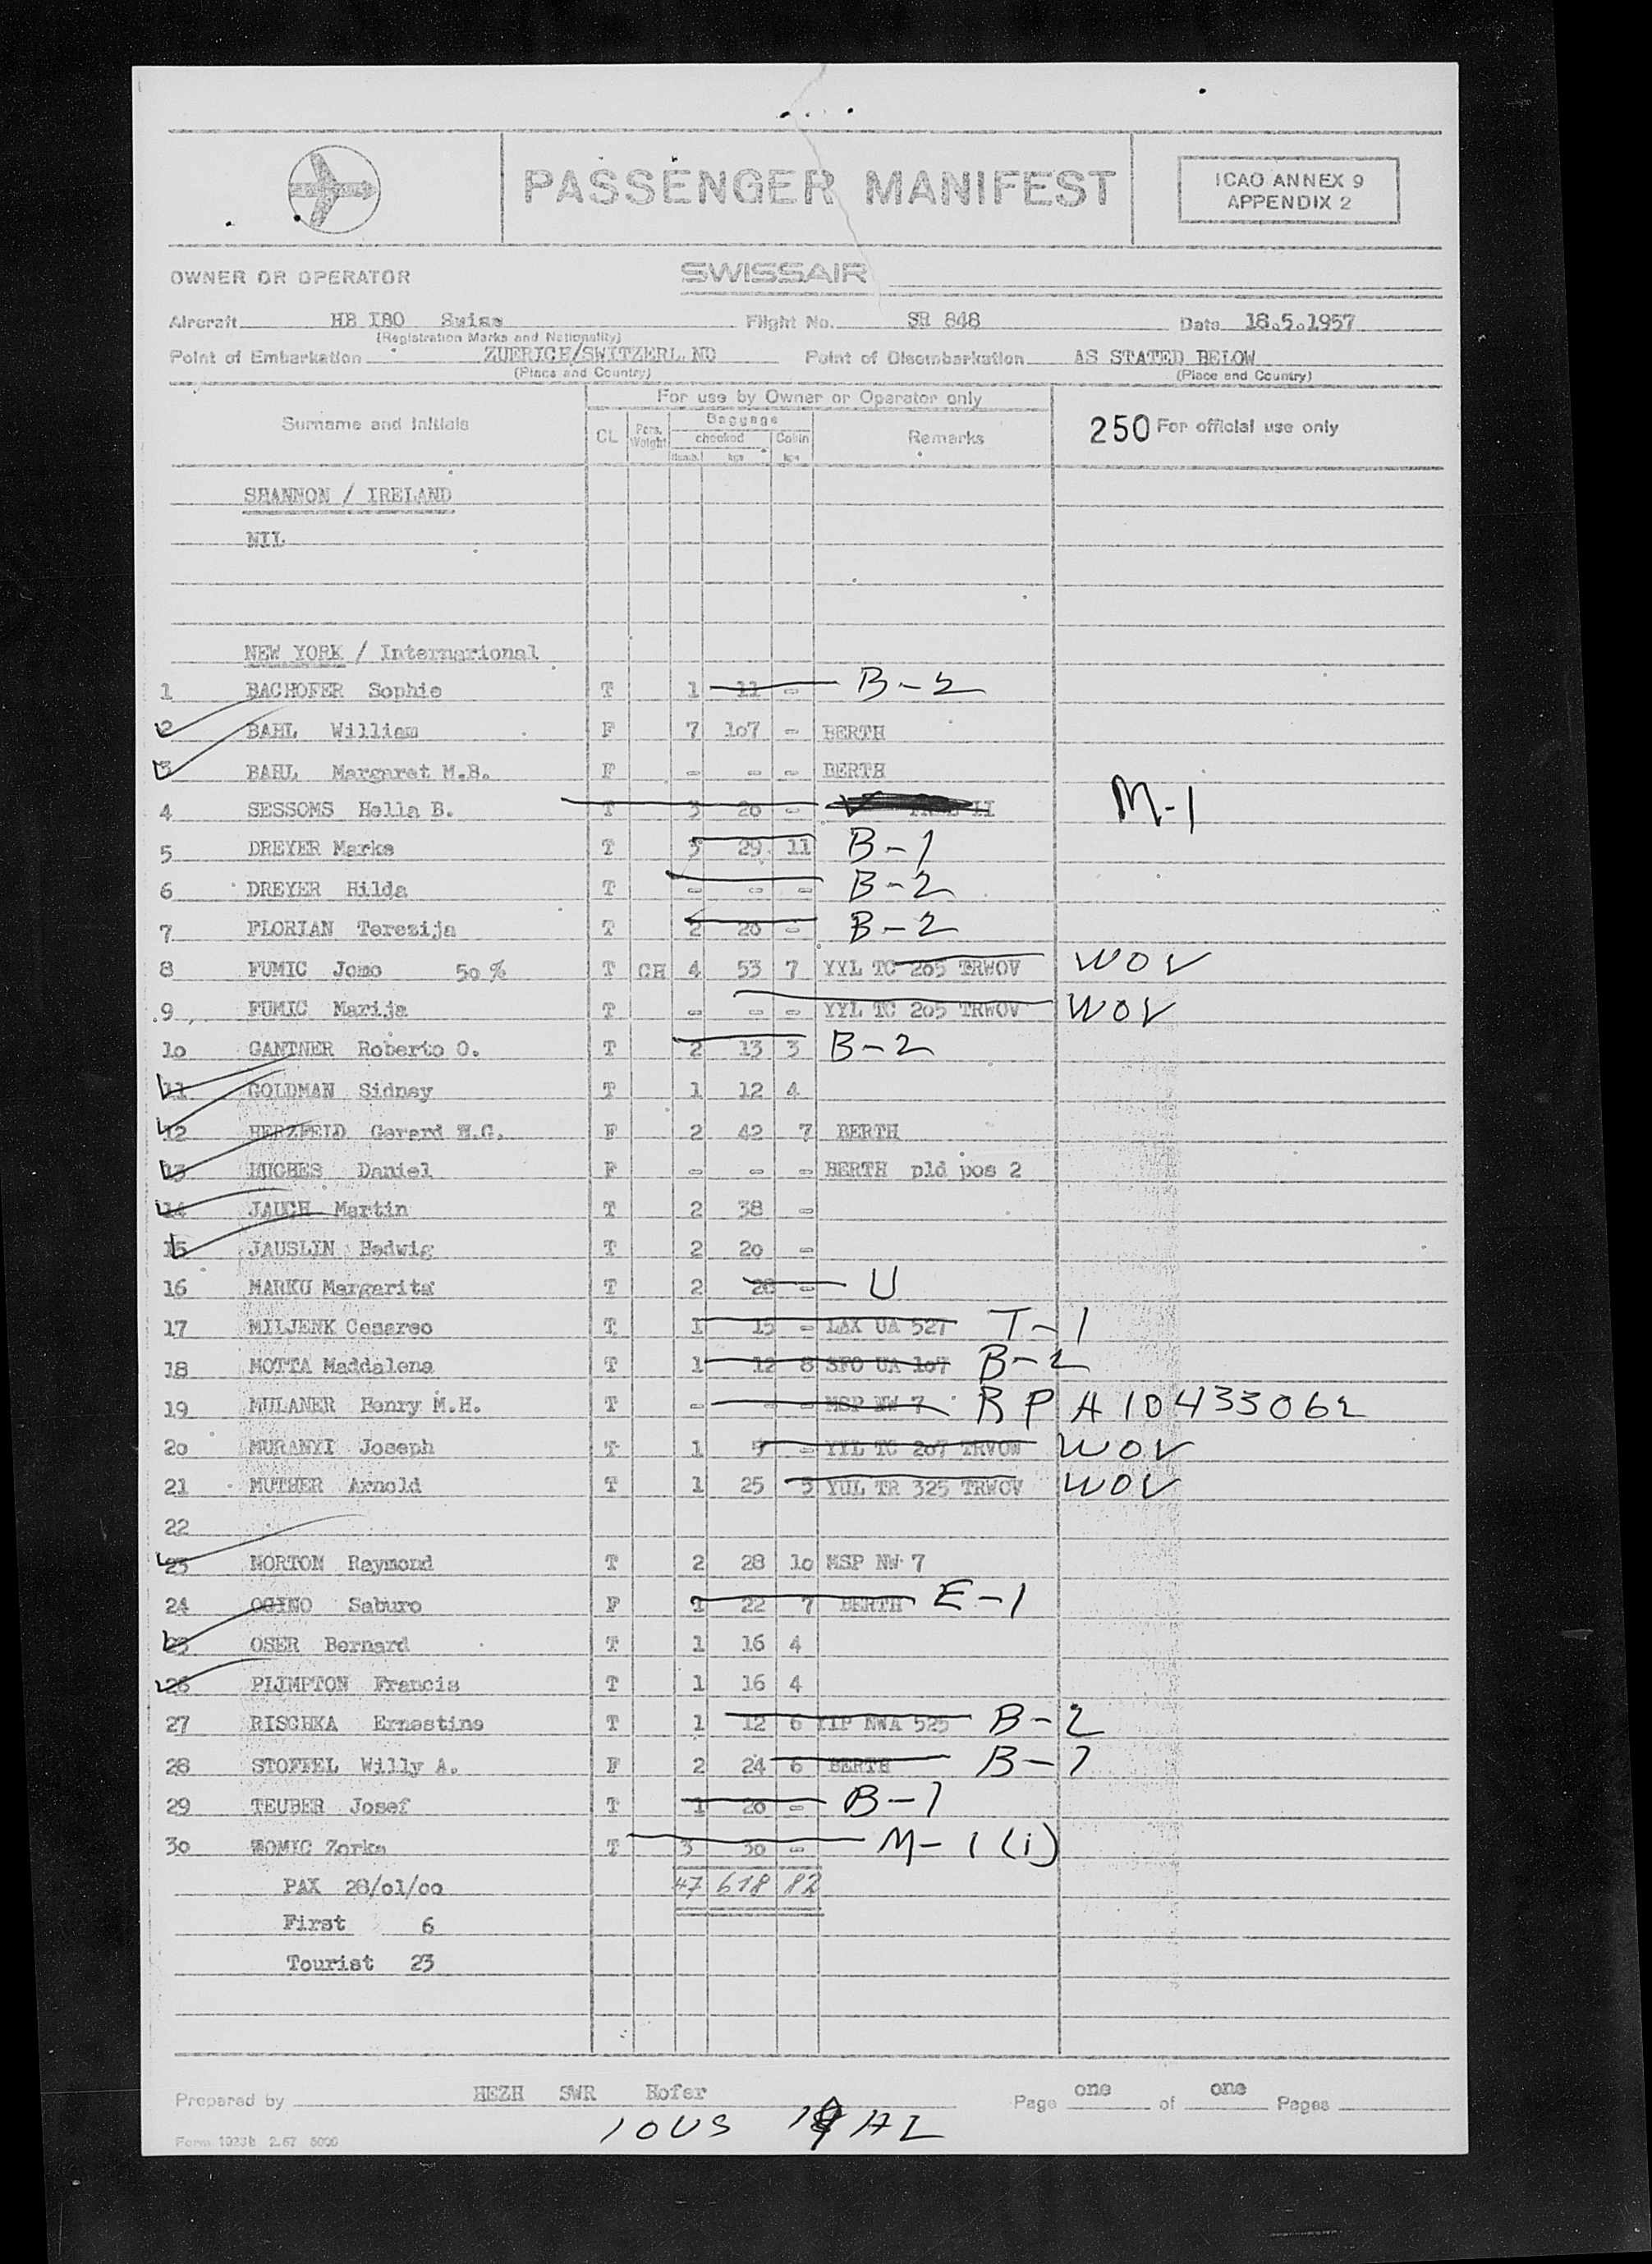 PASSENGER MANIFEST
ICAO ANNEX 9
APPENDIX 2
OWNER OR OPERATOR SWISSAIR
Aircraft HB IBO Swiss Flight No. SR 848 Date 18.5.1957
(Registration Marks and Nationality)
Point of Embarkation ZUERICH/SWITZERL ND Point of Disembarkation AS STATED BELOW
(Place and Country) (Place and Country)
For use by Owner or Operator only
Surname and Initials CL Pers. Weight Baggage checked Cabin Remarks 250 For official use only
Numb. kgs kgs
SHANNON / IRELAND
NIL
NEW YORK / Internarional
1 BACHOFER Sophie T 1 11 - B-2
2 BAHL William F 7 107 - BERTH
3 BAHL Margaret M.B. F - - - BERTH
4 SESSOMS Hella B. T 3 20 - M-1
5 DREYER Marks T 3 29 11 B-1
6 DREYER Hilda T - - - B-2
7 FLORIAN Terezija T 2 20 - B-2
8 FUMIC Jomo 50 % T CH 4 53 7 YYL TC 205 TRWOV WOV
9 FUMIC Marija T - - - YYL TC 205 TRWOV WOV
10 GANTNER Roberto O. T 2 13 3 B-2
11 GOLDMAN Sidney T 1 12 4
12 HERZFELD Gerard H.G. F 2 42 7 BERTH
13 HUGHES Daniel F - - - BERTH pld pos 2
14 JAUCH Martin T 2 38 -
15 JAUSLIN Hedwig T 2 20 -
16 MARKU Margarita T 2 28 - U
17 MILJENK Cesareo T 1 15 - LAX UA 527 T-1
18 MOTTA Maddalena T 1 12 8 SFO UA 107 B-2
19 MULANER Henry M.H. T - - - MSP NW 7 RP A10433062
20 MURANYI Joseph T 1 5 - YYL TC 207 TRVOW WOV
21 MUTHER Arnold T 1 25 5 YUL TR 325 TRWOV WOV
22
23 NORTON Raymond T 2 28 10 MSP NW 7
24 OGINO Saburo F 1 22 7 BERTH E-1
25 OSER Bernard T 1 16 4
26 PLIMPTON Francis T 1 16 4
27 RISCHKA Ernestine T 1 12 6 YIP NWA 525 B-2
28 STOFFEL Willy A. F 2 24 6 BERTH B-1
29 TEUBER Josef T 1 20 - B-1
30 TOMIC Zorka T 3 30 - M-1(i)
PAX 28/01/00 47 618 82
First 6
Tourist 23
Prepared by HEZH SWR Hofer Page one of one Pages
10US 19 AL
Form 1023b 2.57 5000